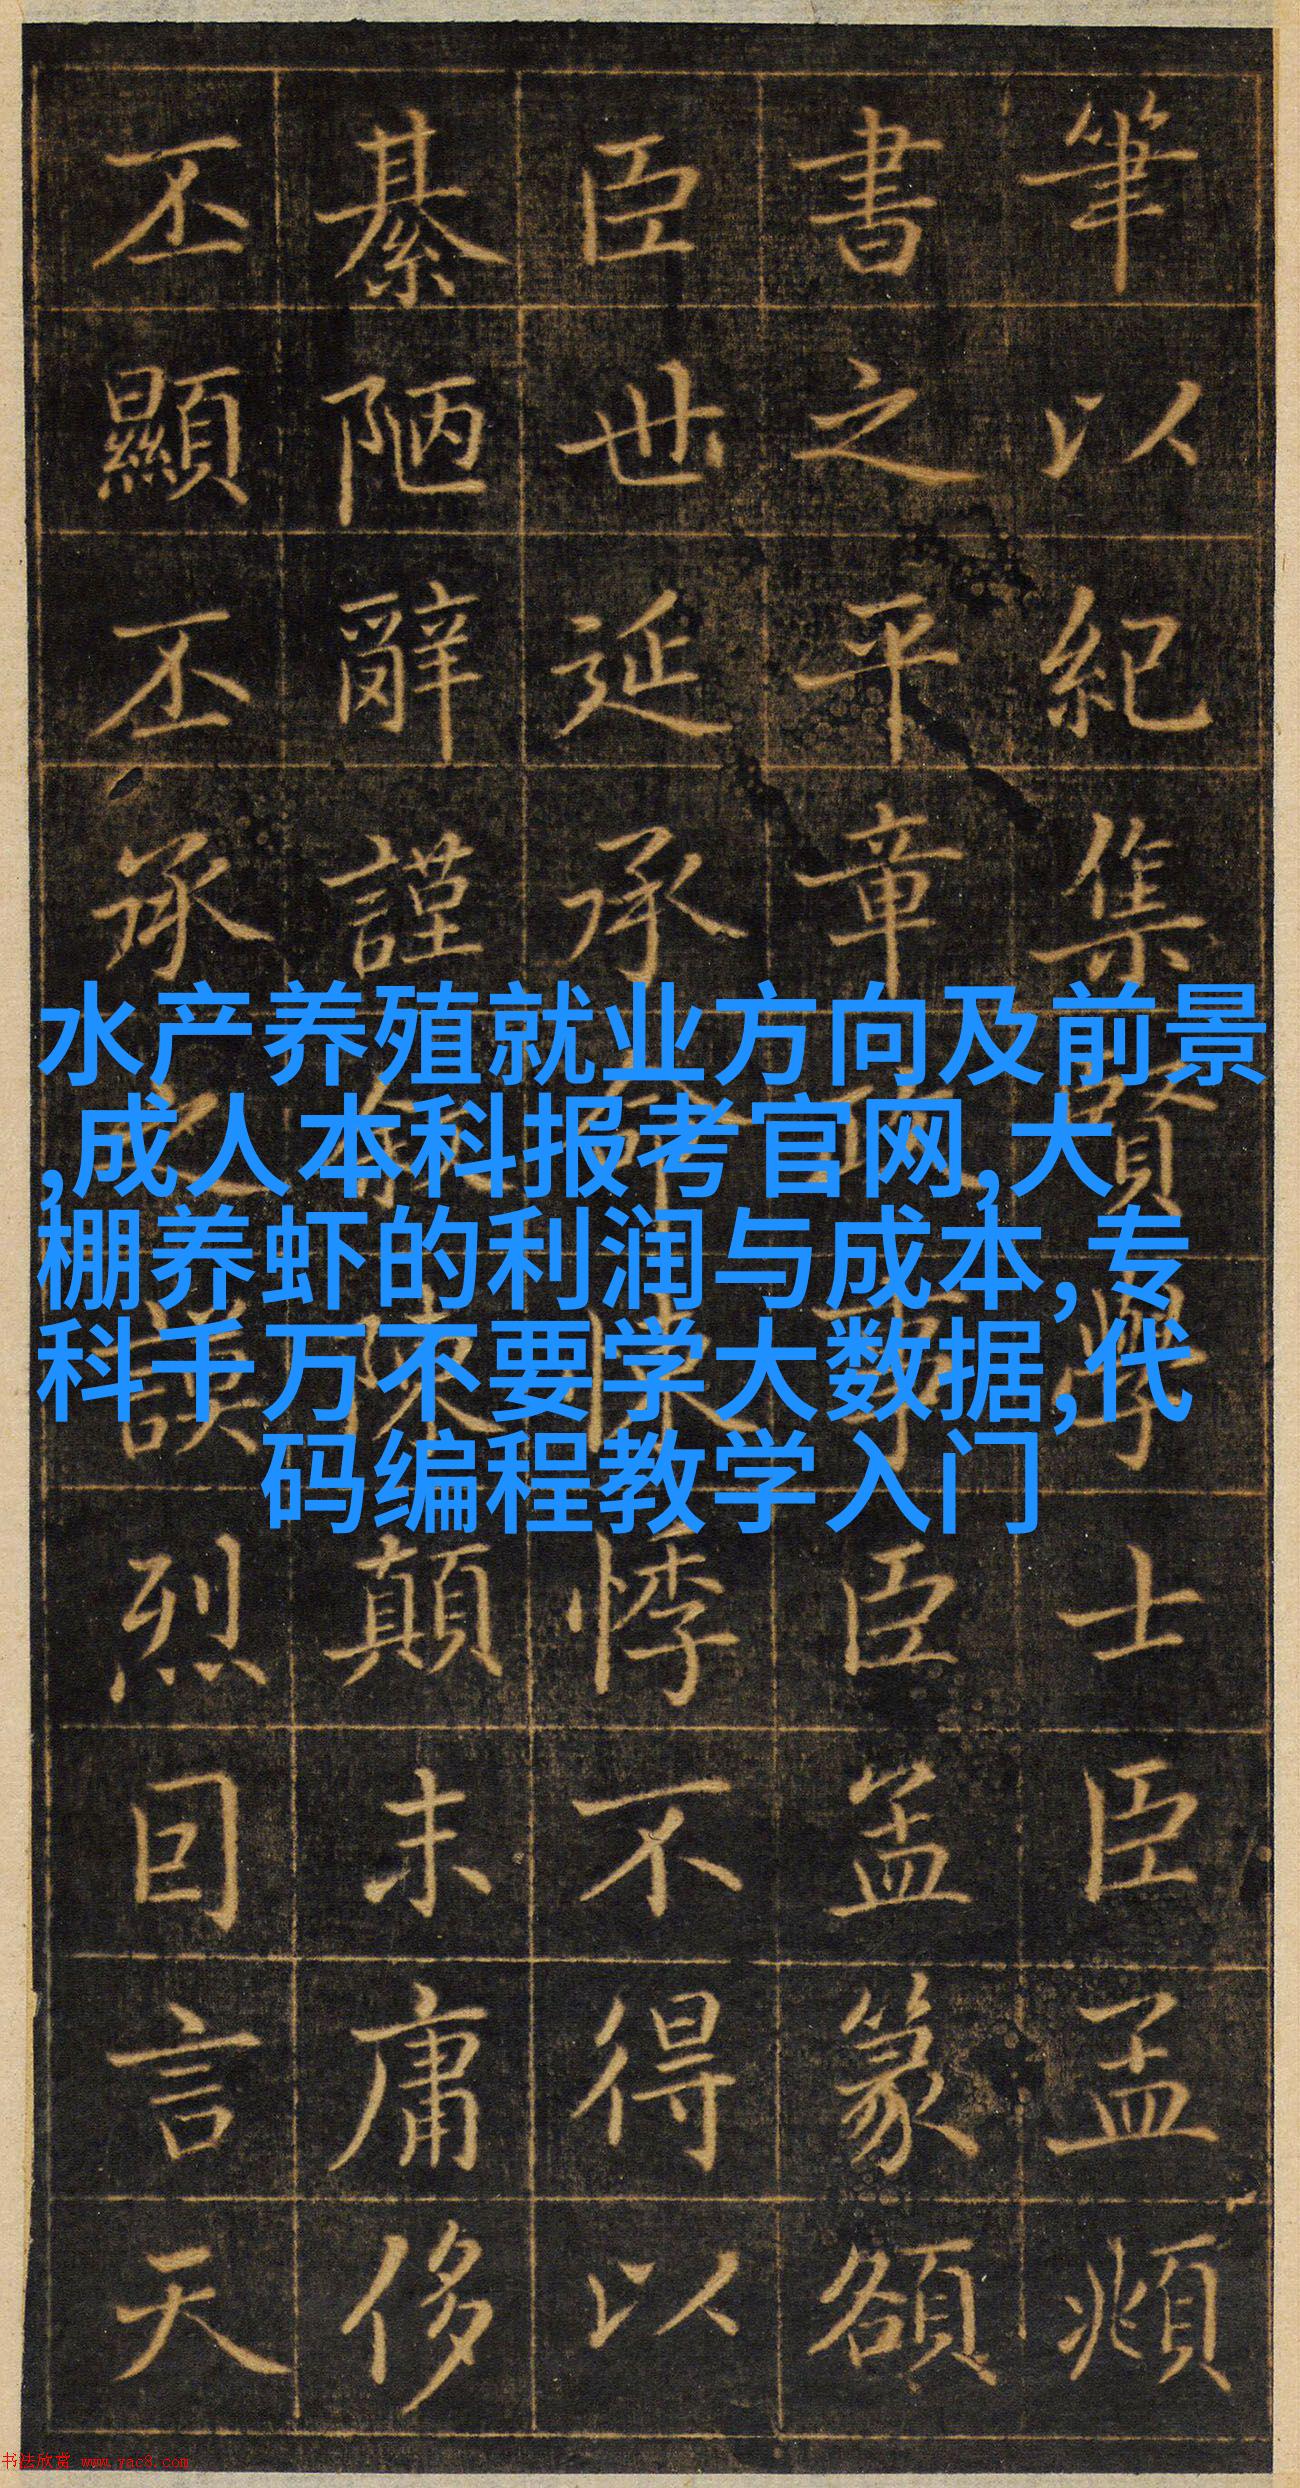 筆以紀集賢學士臣孟頫
書之平章政事臣篆額
臣世延承命悚悸不得以
綦陋辭謹陳顛末庸侈
丕顯丕承之謨烈囙言天
水产养殖就业方向及前景
,成人本科报考官网,大
棚养虾的利润与成本,专
科千万不要学大数据,代
码编程教学入门
书法欣赏 www.yac8.com